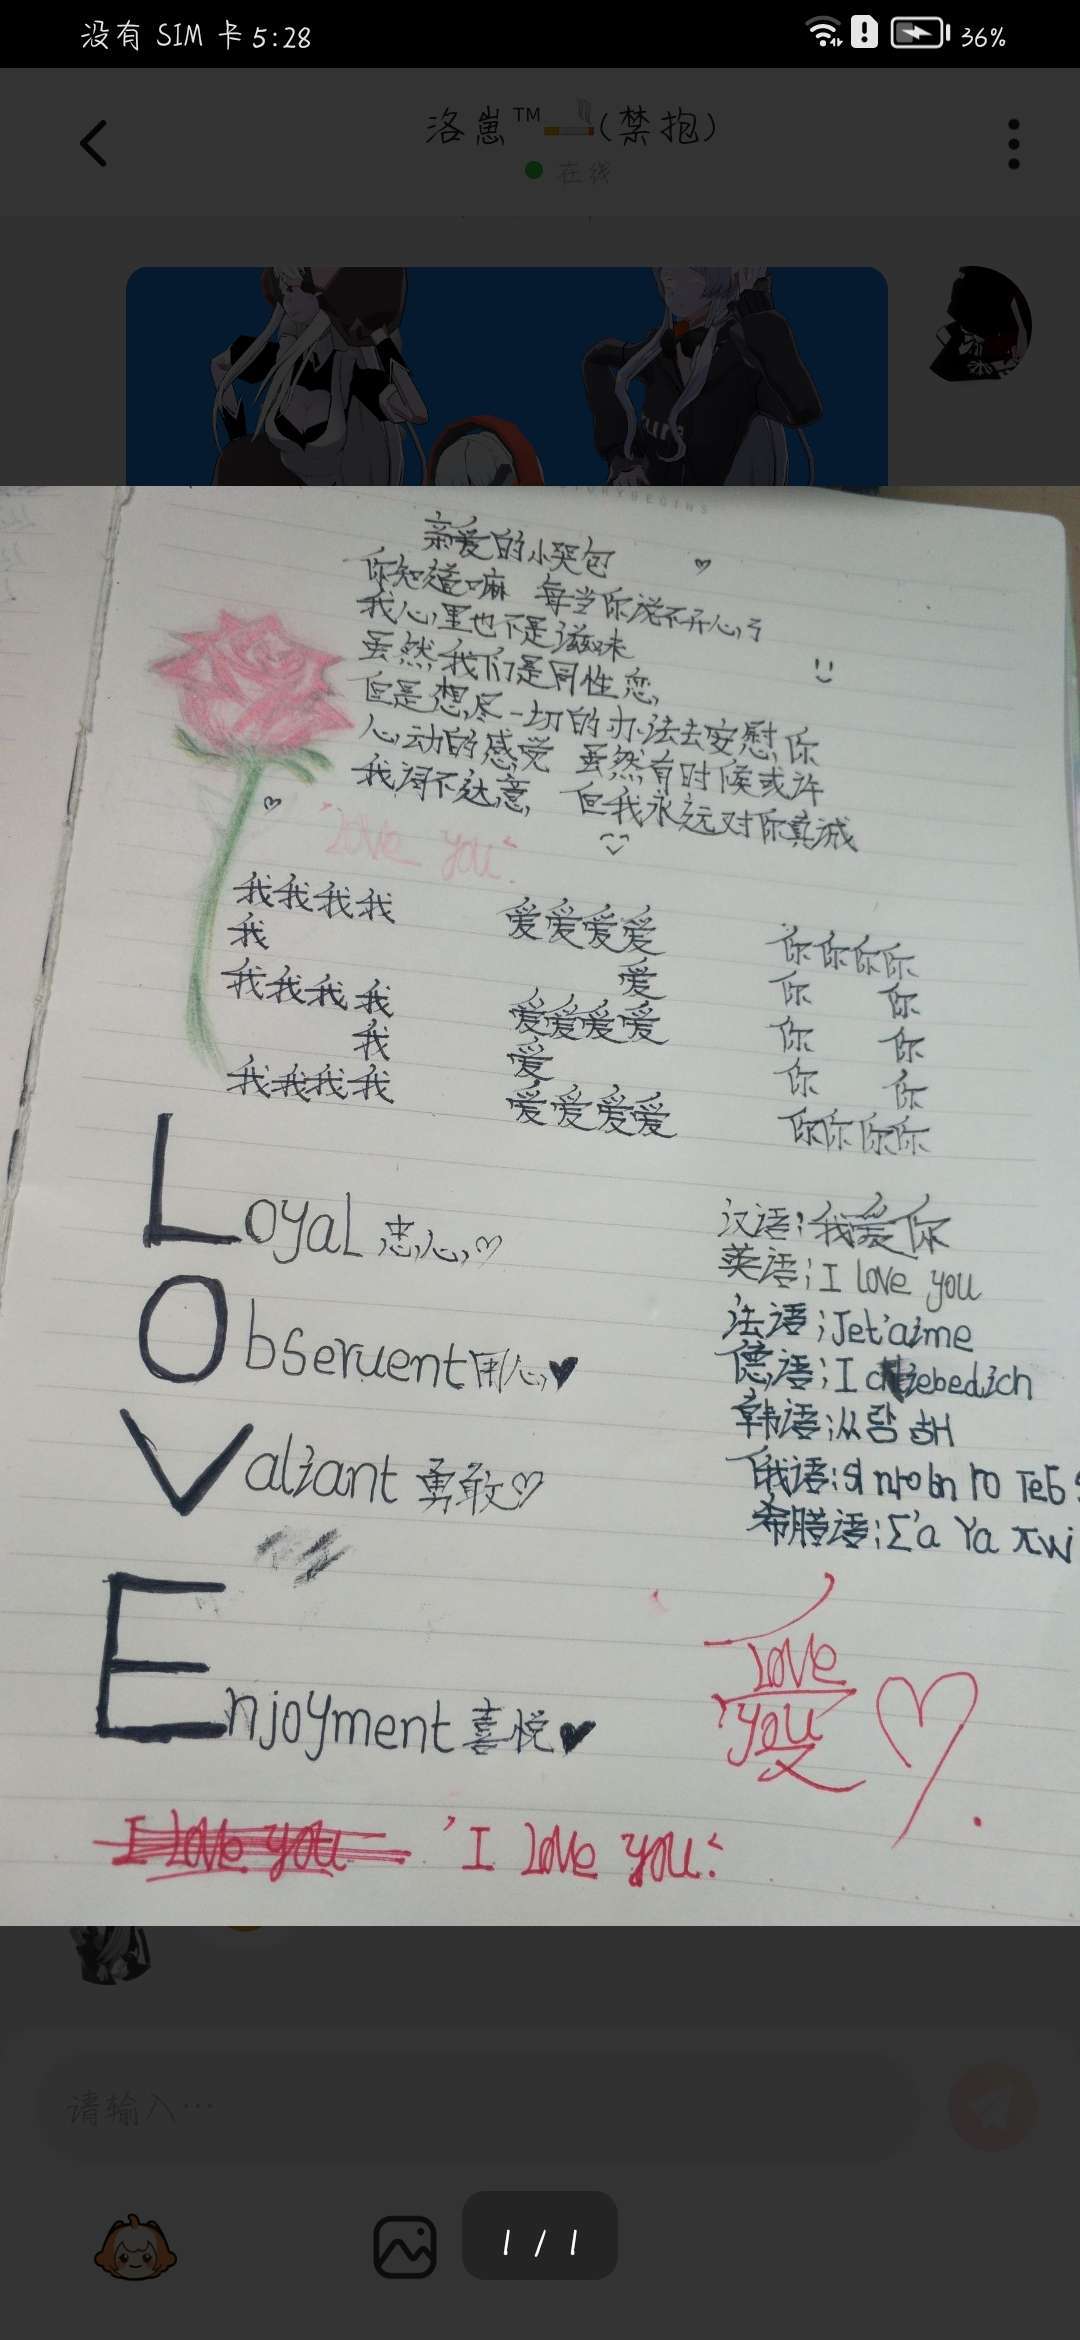 没有 SIM 卡 5:28
36%
洛崽™🚬(禁抱)
在线
亲爱的小哭包
你知道嘛 每当你说不开心,
我心里也不是滋味
虽然我们是同性恋,
但是想尽一切的办法去安慰你
心动的感觉 虽然有时候或许
我词不达意, 但我永远对你真诚
"love you".
我我我我 爱爱爱爱 你你你你
我 爱 你 你
我我我我 爱爱爱爱 你 你
我 爱 你 你
我我我我 爱爱爱爱 你你你你
Loyal 忠心
Observent 用心
Valiant 勇敢
Enjoyment 喜悦
汉语:我爱你
英语:I love you
法语:Jet'aime
德语:I chliebedich
韩语:사랑해
俄语:
希腊语:Σ'a γa πw
love
you
I love you 'I love you.
请输入…
1 / 1